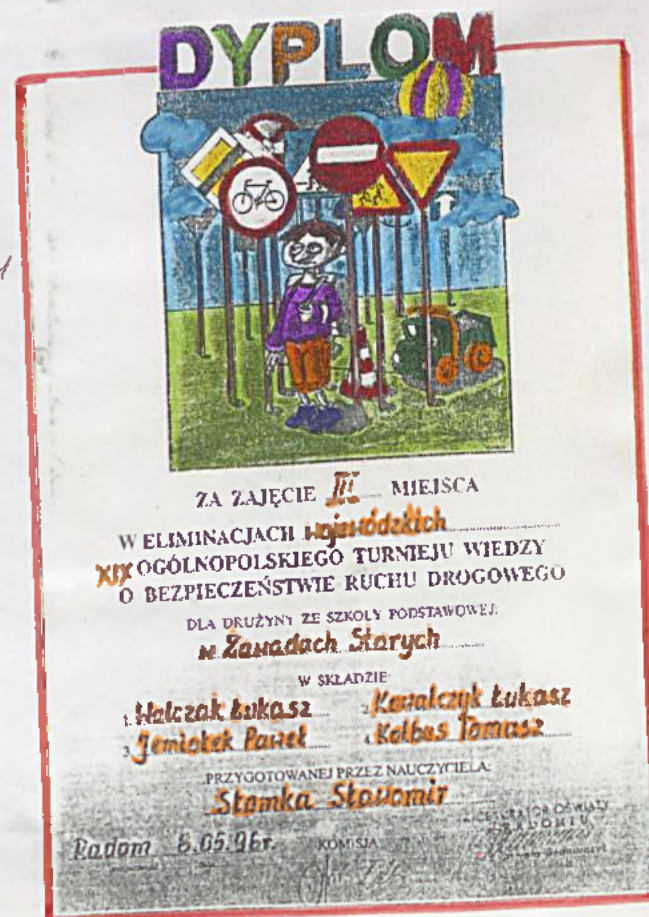 DYPLOM
ZA ZAJĘCIE III MIEJSCA
W ELIMINACJACH wojewódzkich
XIX OGÓLNOPOLSKIEGO TURNIEJU WIEDZY
O BEZPIECZEŃSTWIE RUCHU DROGOWEGO
DLA DRUŻYNY ZE SZKOŁY PODSTAWOWEJ:
w Zawadach Starych
W SKŁADZIE:
1. Walczak Łukasz 2. Kowalczyk Łukasz
3. Jemiołek Paweł 4. Kolbus Tomasz
PRZYGOTOWANEJ PRZEZ NAUCZYCIELA:
Słomka Sławomir
OŚWIATY
RADOMIU
Radom 8.05.96r. KOMISJA